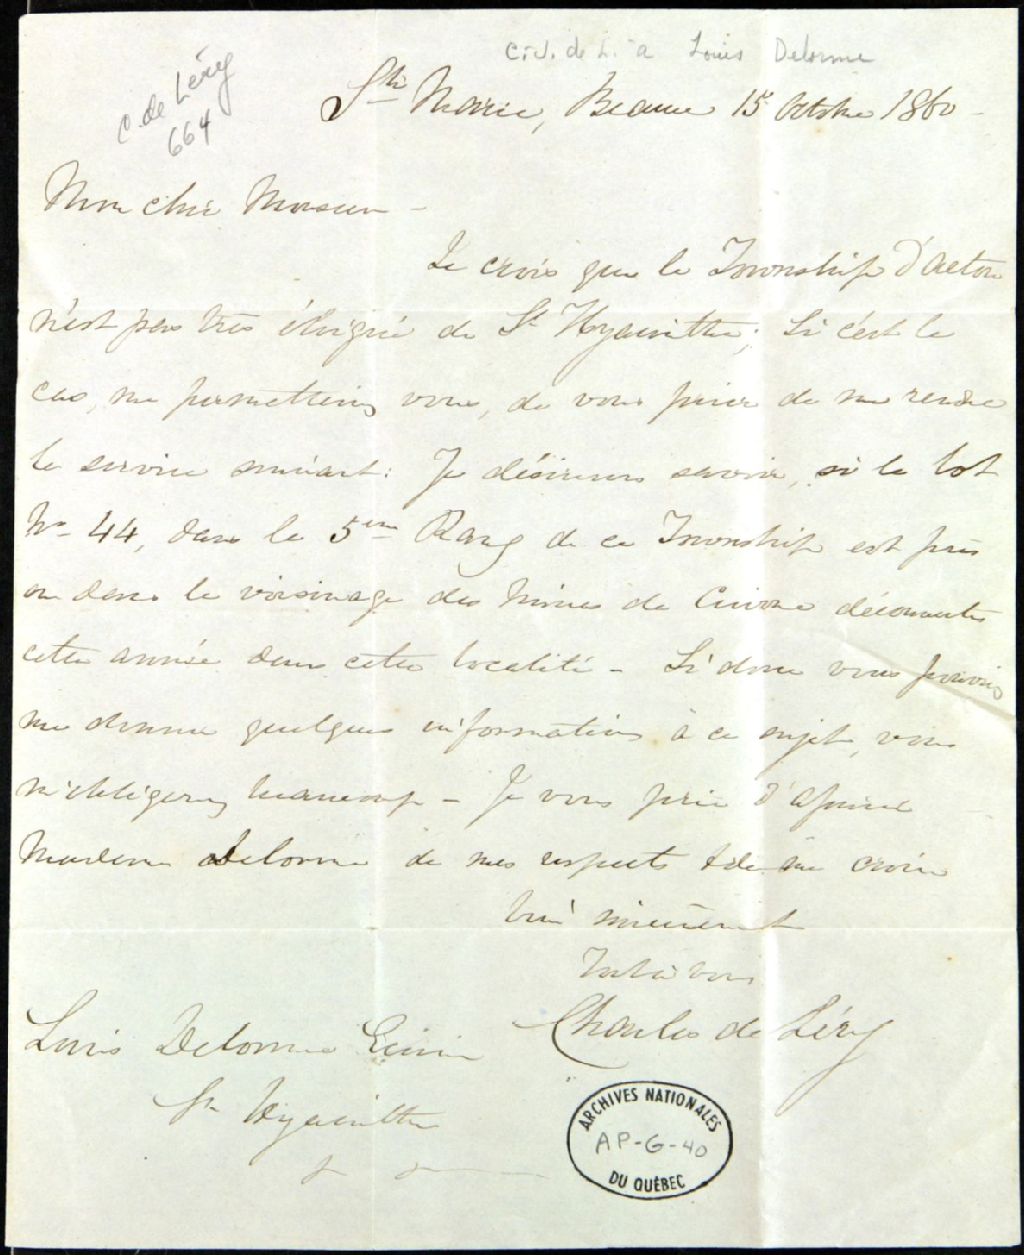 C.J. de L. à Louis Delorme
C. de Léry
664
Ste Marie, Beauce 15 Octobre 1860
Mon cher Monsieur -
Je crois que le Township d'Acton
n'est pas très éloigné de St Hyacinthe; Si c'est le
cas, me permettriez vous, de vous prier de me rendre
le service suivant: Je désirerais savoir, si le lot
No 44, dans le 5eme Rang de ce Township est près
ou dans le voisinage des Mines de Cuivre découvertes
cette année dans cette localité - Si donc vous pouviez
me donner quelques informations à ce sujet, vous
m'obligerez beaucoup - Je vous prie d'assurer
Madame Delorme de mes respects & de me croire
bien sincèrement
Tout à vous
Charles de Léry
Louis Delorme Ecuier
St Hyacinthe
ARCHIVES NATIONALES
AP-G-40
DU QUÉBEC